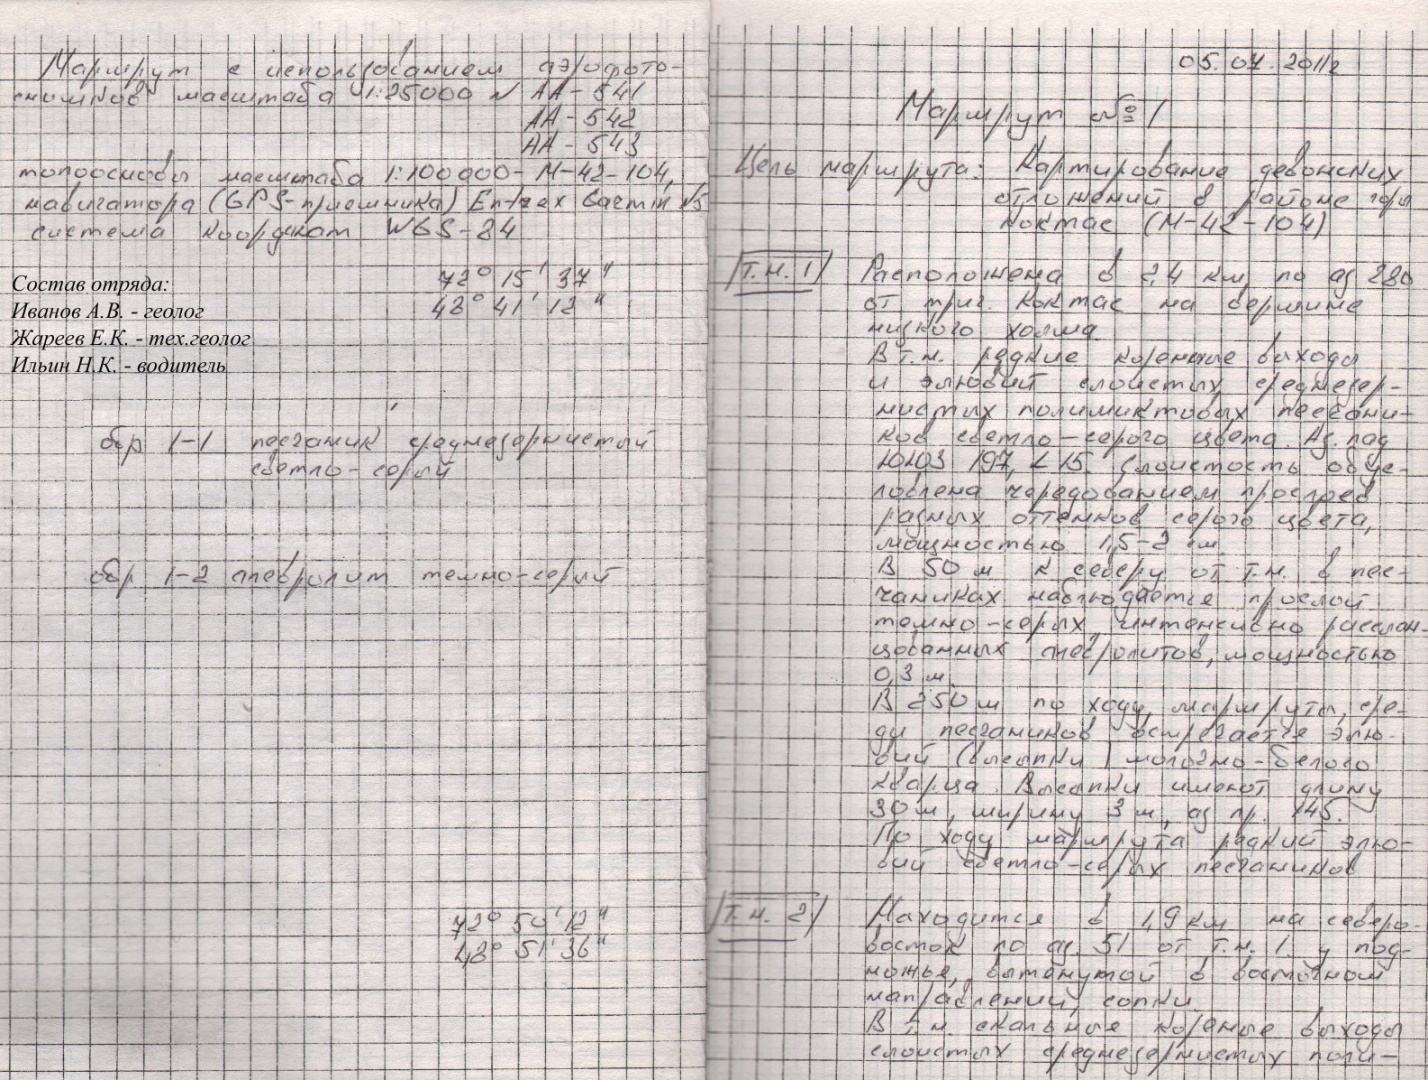 Маршрут с использованием аэрофото-
снимков масштаба 1:25000 № АА-541
АА-542
АА-543
топоосновы масштаба 1:100000- М-42-104,
навигатора (GPS-приемника) Garmin
система координат WGS-84
72° 15' 37"
48° 41' 12"
Состав отряда:
Иванов А.В. - геолог
Жареев Е.К. - тех.геолог
Ильин Н.К. - водитель
обр 1-1 песчаник среднезернистый
светло-серый
обр 1-2 алевролит темно-серый
72° 50' 12"
48° 51' 36"
05.07.2011г
Маршрут №1
Цель маршрута: Картирование девонских
отложений в районе горы
Коктас (М-42-104)
Т.н. 1 Расположена в 2,4 км по аз 280
от триг. Коктас на вершине
низкого холма.
В т.н. редкие коренные выходы
и элювий слоистых среднезер-
нистых полимиктовых песчани-
ков светло-серого цвета. Аз. пад
ЮЮЗ 197, ∠15. Слоистость обус-
ловлена чередованием прослоев
разных оттенков серого цвета,
мощностью 1,5-2 см.
В 50 м к северу от т.н. в пес-
чаниках наблюдается прослой
темно-серых, интенсивно рассланц-
цованных алевролитов, мощностью
0,3 м.
В 250 м по ходу маршрута, сре-
ди песчаников встречается элю-
вий (высыпки) молочно-белого
кварца. Высыпки имеют длину
30 м, ширину 3 м, аз пр. 145.
По ходу маршрута редкий элю-
вий светло-серых песчаников
Т.н. 2 Находится в 1,9 км на северо-
восток по аз. 51 от т.н. 1. у под-
ножья, вытянутой в восточном
направлении, сопки.
В т.н. скальные кореные выходы
слоистых среднезернистых поли-